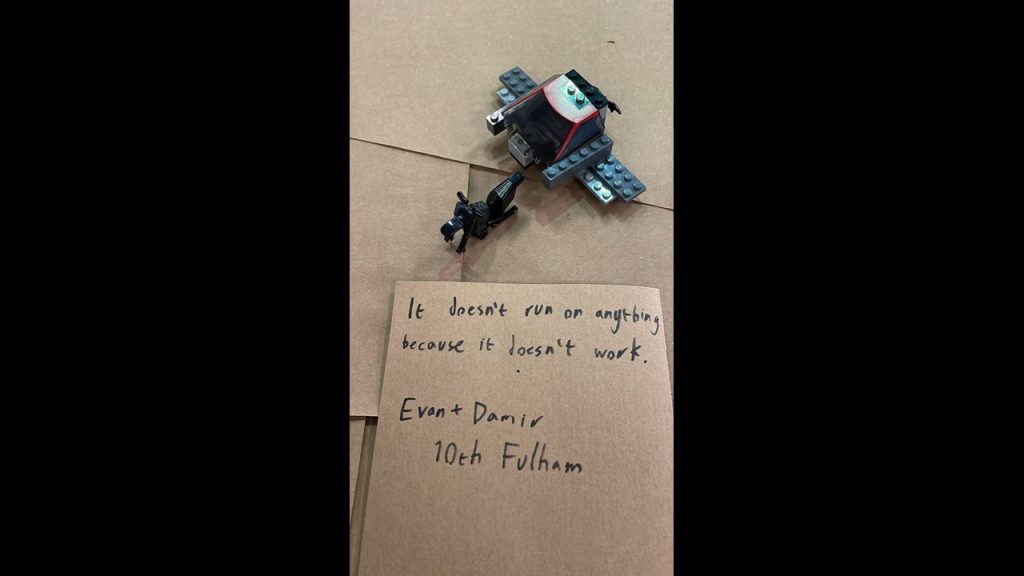 It doesn't run on anything
because it doesn't work.
Evan + Damir
10th Fulham